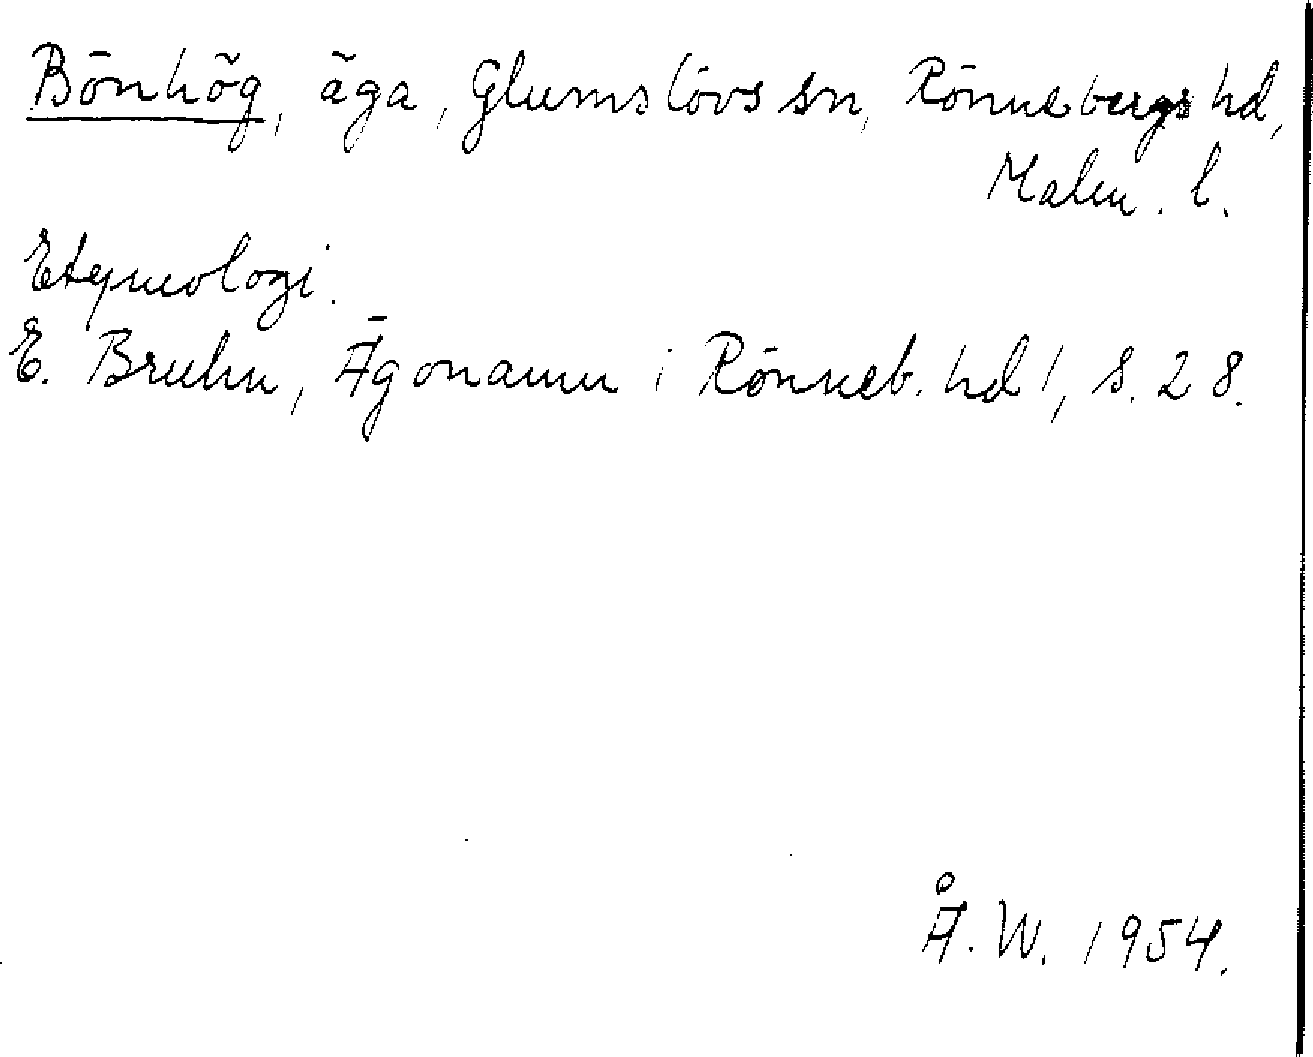 Bönhög, äga, Glumslövs sn, Rönnebergs hd,
Malm. l.
Etymologi.
E. Bruhn, Ägonamn i Rönneb. hd 1, s. 28.
Å. W. 1954.